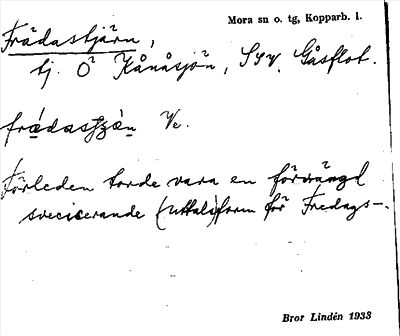 Mora sn o. tg, Kopparb. l.
Frädastjärn,
tj. O Kånåsjön, SSV. Gåsflot.
Förleden torde vara en förvrängd
svecicerande (uttals)form för Fredags-.
Bror Lindén 1933